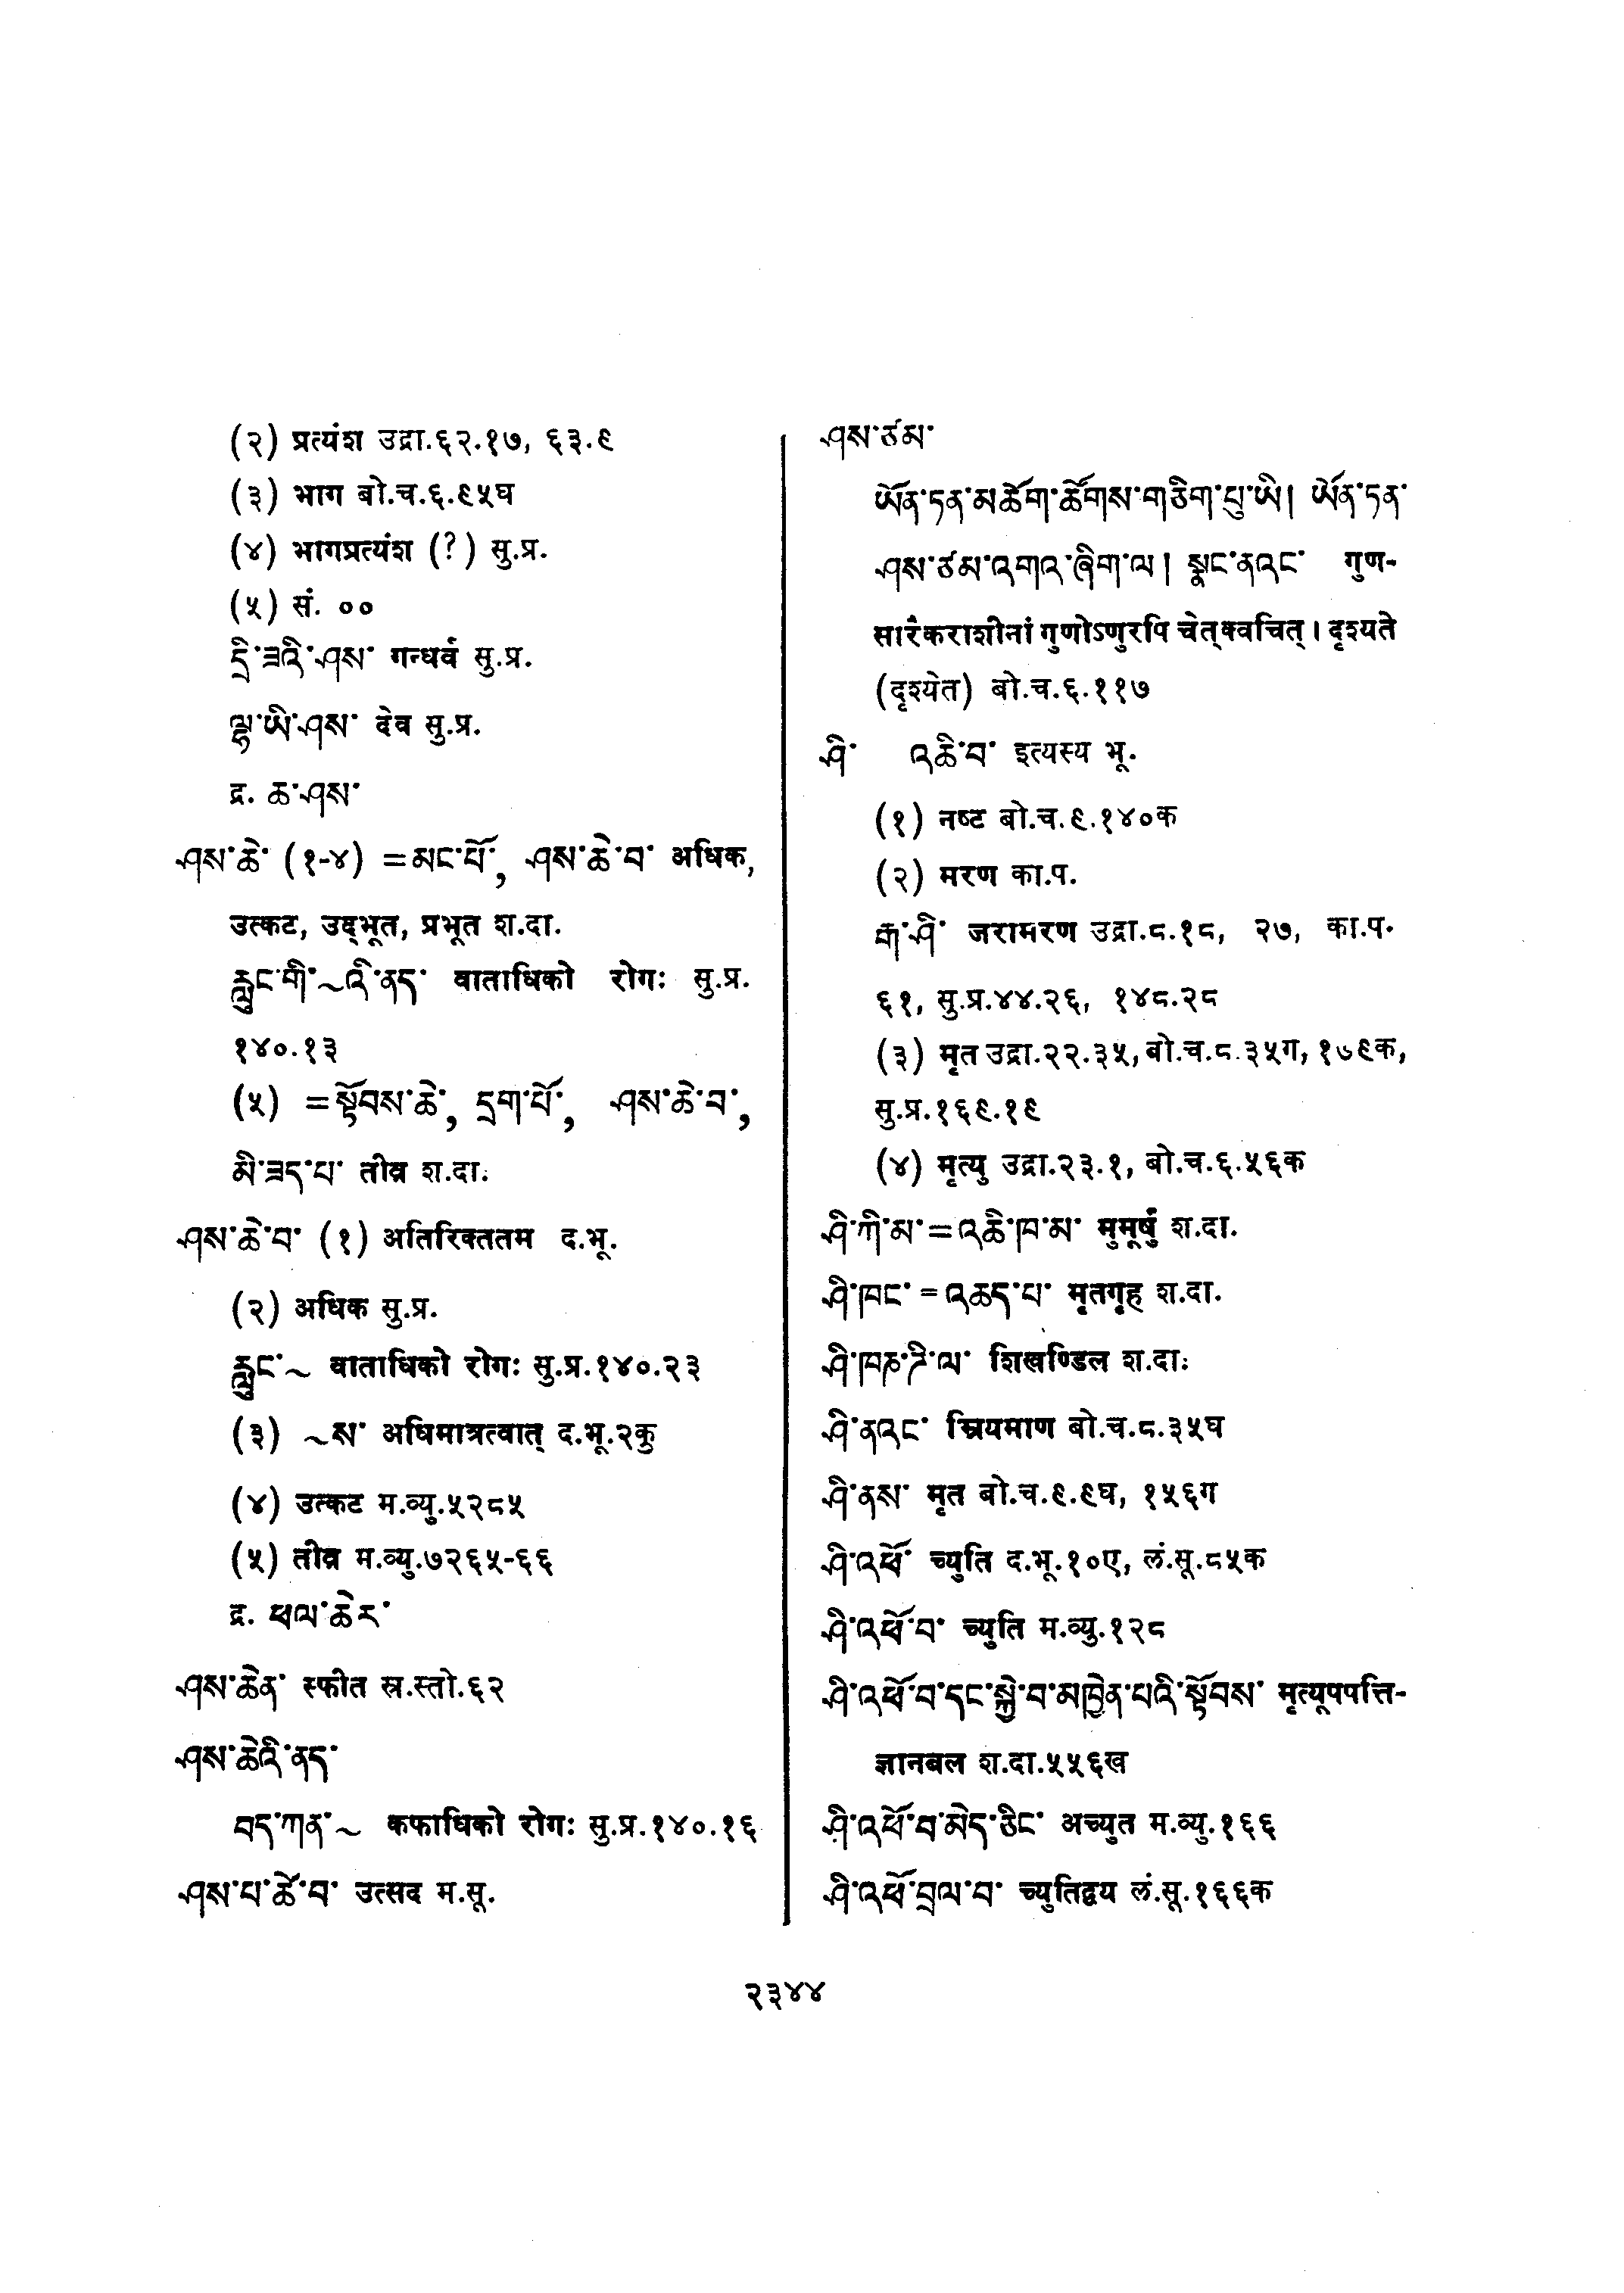 (२) प्रत्यंश उद्रा.६२.१७, ६३.९
(३) भाग बो.च.६.९५घ
(४) भागप्रत्यंश (?) सु.प्र.
(५) सं. ००
དྲི་ཟའི་ཤས་ गन्धर्व सु.प्र.
ལྷ་ཡི་ཤས་ देव सु.प्र.
द्र. ཆ་ཤས་
ཤས་ཆེ་ (१-४) =མང་པོ་, ཤས་ཆེ་བ་ अधिक,
उत्कट, उद्भूत, प्रभूत श.दा.
རླུང་གི་~འི་ནད་ वाताधिको रोगः सु.प्र.
१४०.१३
(५) =སྟོབས་ཆེ་, དྲག་པོ་, ཤས་ཆེ་བ་,
མི་ཟད་པ་ तीव्र श.दा.
ཤས་ཆེ་བ་ (१) अतिरिक्ततम द.भू.
(२) अधिक सु.प्र.
རླུང་~ वाताधिको रोगः सु.प्र.१४०.२३
(३) ~ས་ अधिमात्रत्वात् द.भू.२कु
(४) उत्कट म.व्यु.५२८५
(५) तीव्र म.व्यु.७२६५-६६
द्र. ཕལ་ཆེར་
ཤས་ཆེན་ स्फीत स्र.स्तो.६२
ཤས་ཆེའི་ནད་
བད་ཀན་~ कफाधिको रोगः सु.प्र.१४०.१६
ཤས་པ་ཚོ་བ་ उत्सद म.सू.
ཤས་ཙམ་
ཡོན་ཏན་མཆོག་ཚོགས་གཅིག་པུ་ཡི། ཡོན་ཏན་
ཤས་ཙམ་འགའ་ཞིག་ལ། སྣང་ནའང་ गुण-
सारैकराशीनां गुणोऽणुरपि चेत्क्वचित्। दृश्यते
(दृश्येत) बो.च.६.११७
ཤི་ འཆི་བ་ इत्यस्य भू.
(१) नष्ट बो.च.९.१४०क
(२) मरण का.प.
རྒ་ཤི་ जरामरण उद्रा.८.१८, २७, का.प.
६१, सु.प्र.४४.२६, १४८.२८
(३) मृत उद्रा.२२.३५, बो.च.८.३५ग, १७९क,
सु.प्र.१६९.१९
(४) मृत्यु उद्रा.२३.१, बो.च.६.५६क
ཤི་ཀི་མ་=འཆི་ཁ་མ་ मुमूर्षु श.दा.
ཤི་ཁང་=འཆད་པ་ मृतगृह श.दा.
ཤི་ཁཎ་ཌི་ལ་ शिखण्डिल श.दा.
ཤི་ནའང་ म्रियमाण बो.च.८.३५घ
ཤི་ནས་ मृत बो.च.९.९घ, १५६ग
ཤི་འཕོ་ च्युति द.भू.१०ए, लं.सू.८५क
ཤི་འཕོ་བ་ च्युति म.व्यु.१२८
ཤི་འཕོ་བ་དང་སྐྱེ་བ་མཁྱེན་པའི་སྟོབས་ मृत्यूपपत्ति-
ज्ञानबल श.दा.५५६ख
ཤི་འཕོ་བ་མེད་ཅིང་ अच्युत म.व्यु.१६६
ཤི་འཕོ་བྲལ་བ་ च्युतिद्वय लं.सू.१६६क
२३४४